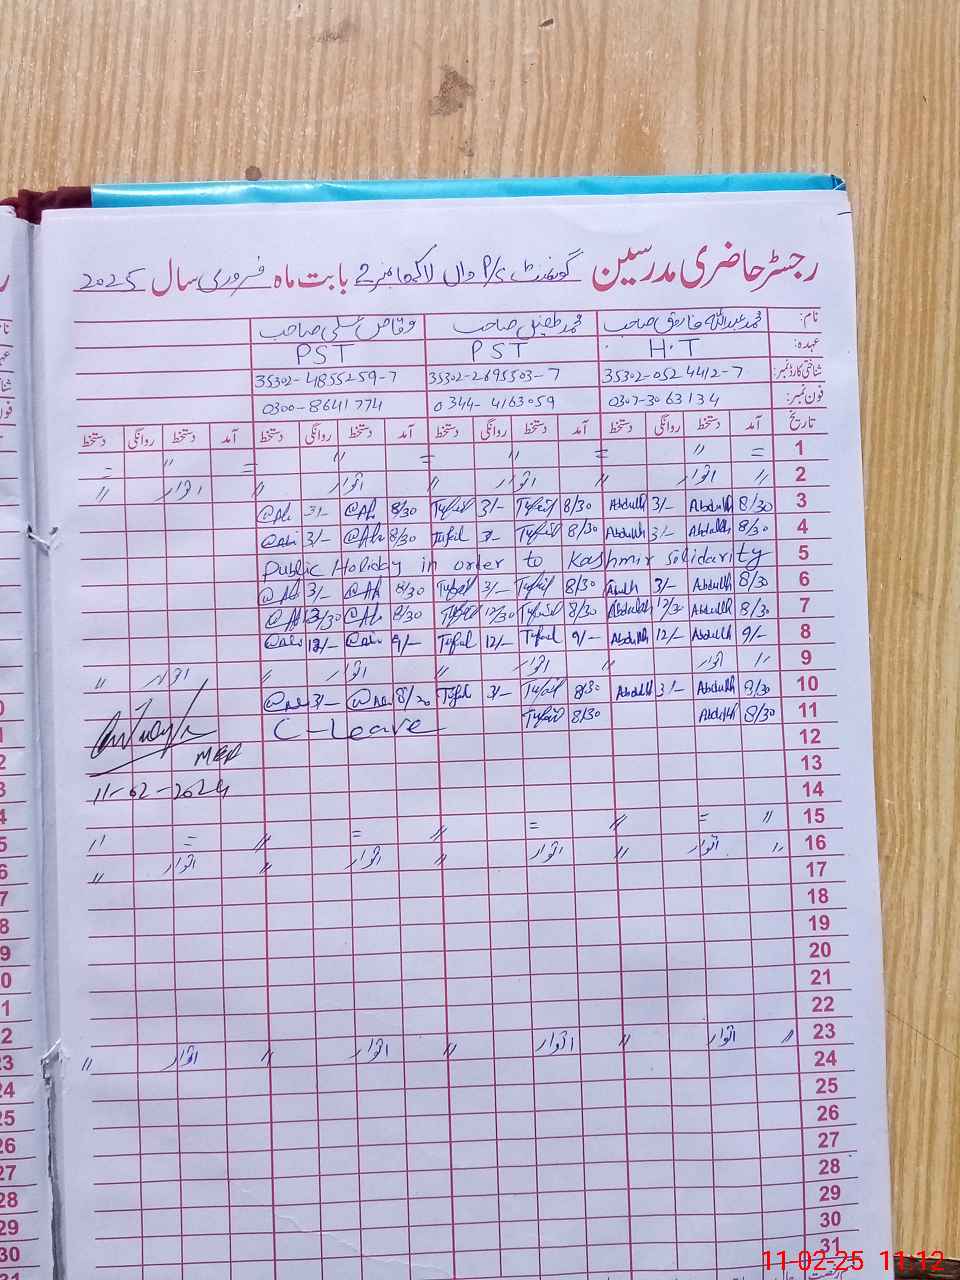 رجسٹر حاضری مدرسین گورنمنٹ P/S وال لاکھا نمبر 2 بابت ماہ فروری سال 2025
نام: محمد عبداللہ فاروق صاحب محمد طفیل صاحب وقاص علی صاحب
عہدہ: H.T PST PST
شناختی کارڈ نمبر: 35302-0524412-7 35302-2695503-7 35302-4855259-7
فون نمبر: 0307-3063134 0344-4163059 0300-8641774
تاریخ آمد دستخط روانگی دستخط آمد دستخط روانگی دستخط آمد دستخط روانگی دستخط آمد دستخط روانگی دستخط
1 = 〃 = 〃 = 〃 = 〃 =
2 〃 اتوار 〃 اتوار 〃 اتوار 〃 اتوار 〃
3 8/30 Abdullh 3/- Abdullh 8/30 Tufail 3/- Tufail 8/30 @Ali 3/- @Ali
4 8/30 Abdullh 3/- Abdullh 8/30 Tufail 3/- Tufail 8/30 @Ali 3/- @Ali
5 Public Holiday in order to Kashmir solidarity
6 8/30 Abdullh 3/- Abdullh 8/30 Tufail 3/- Tufail 8/30 @Ali 3/- @Ali
7 8/30 Abdullh 12/30 Abdullh 8/30 Tufail 12/30 Tufail 8/30 @Ali 12/30 @Ali
8 9/- Abdullh 12/- Abdullh 9/- Tufail 12/- Tufail 9/- @Ali 12/- @Ali
9 〃 اتوار 〃 اتوار 〃 اتوار 〃 اتوار 〃
10 8/30 Abdullh 3/- Abdullh 8/30 Tufail 3/- Tufail 8/30 @Ali 3/- @Ali
11 8/30 Abdullh 8/30 Tufail C-Leave
12
13
11-02-2024
14
15 〃 = 〃 = 〃 = 〃 = 〃
16 〃 اتوار 〃 اتوار 〃 اتوار 〃 اتوار 〃
17
18
19
20
21
22
23 〃 اتوار 〃 اتوار 〃 اتوار 〃 اتوار 〃
24
25
26
27
28
29
30
31
11-02-25 11:12